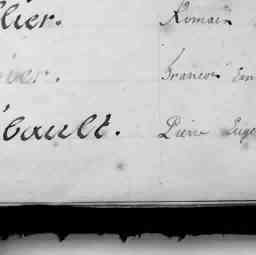 llier. Romain
ier. Francois
bault. Pierre Euge